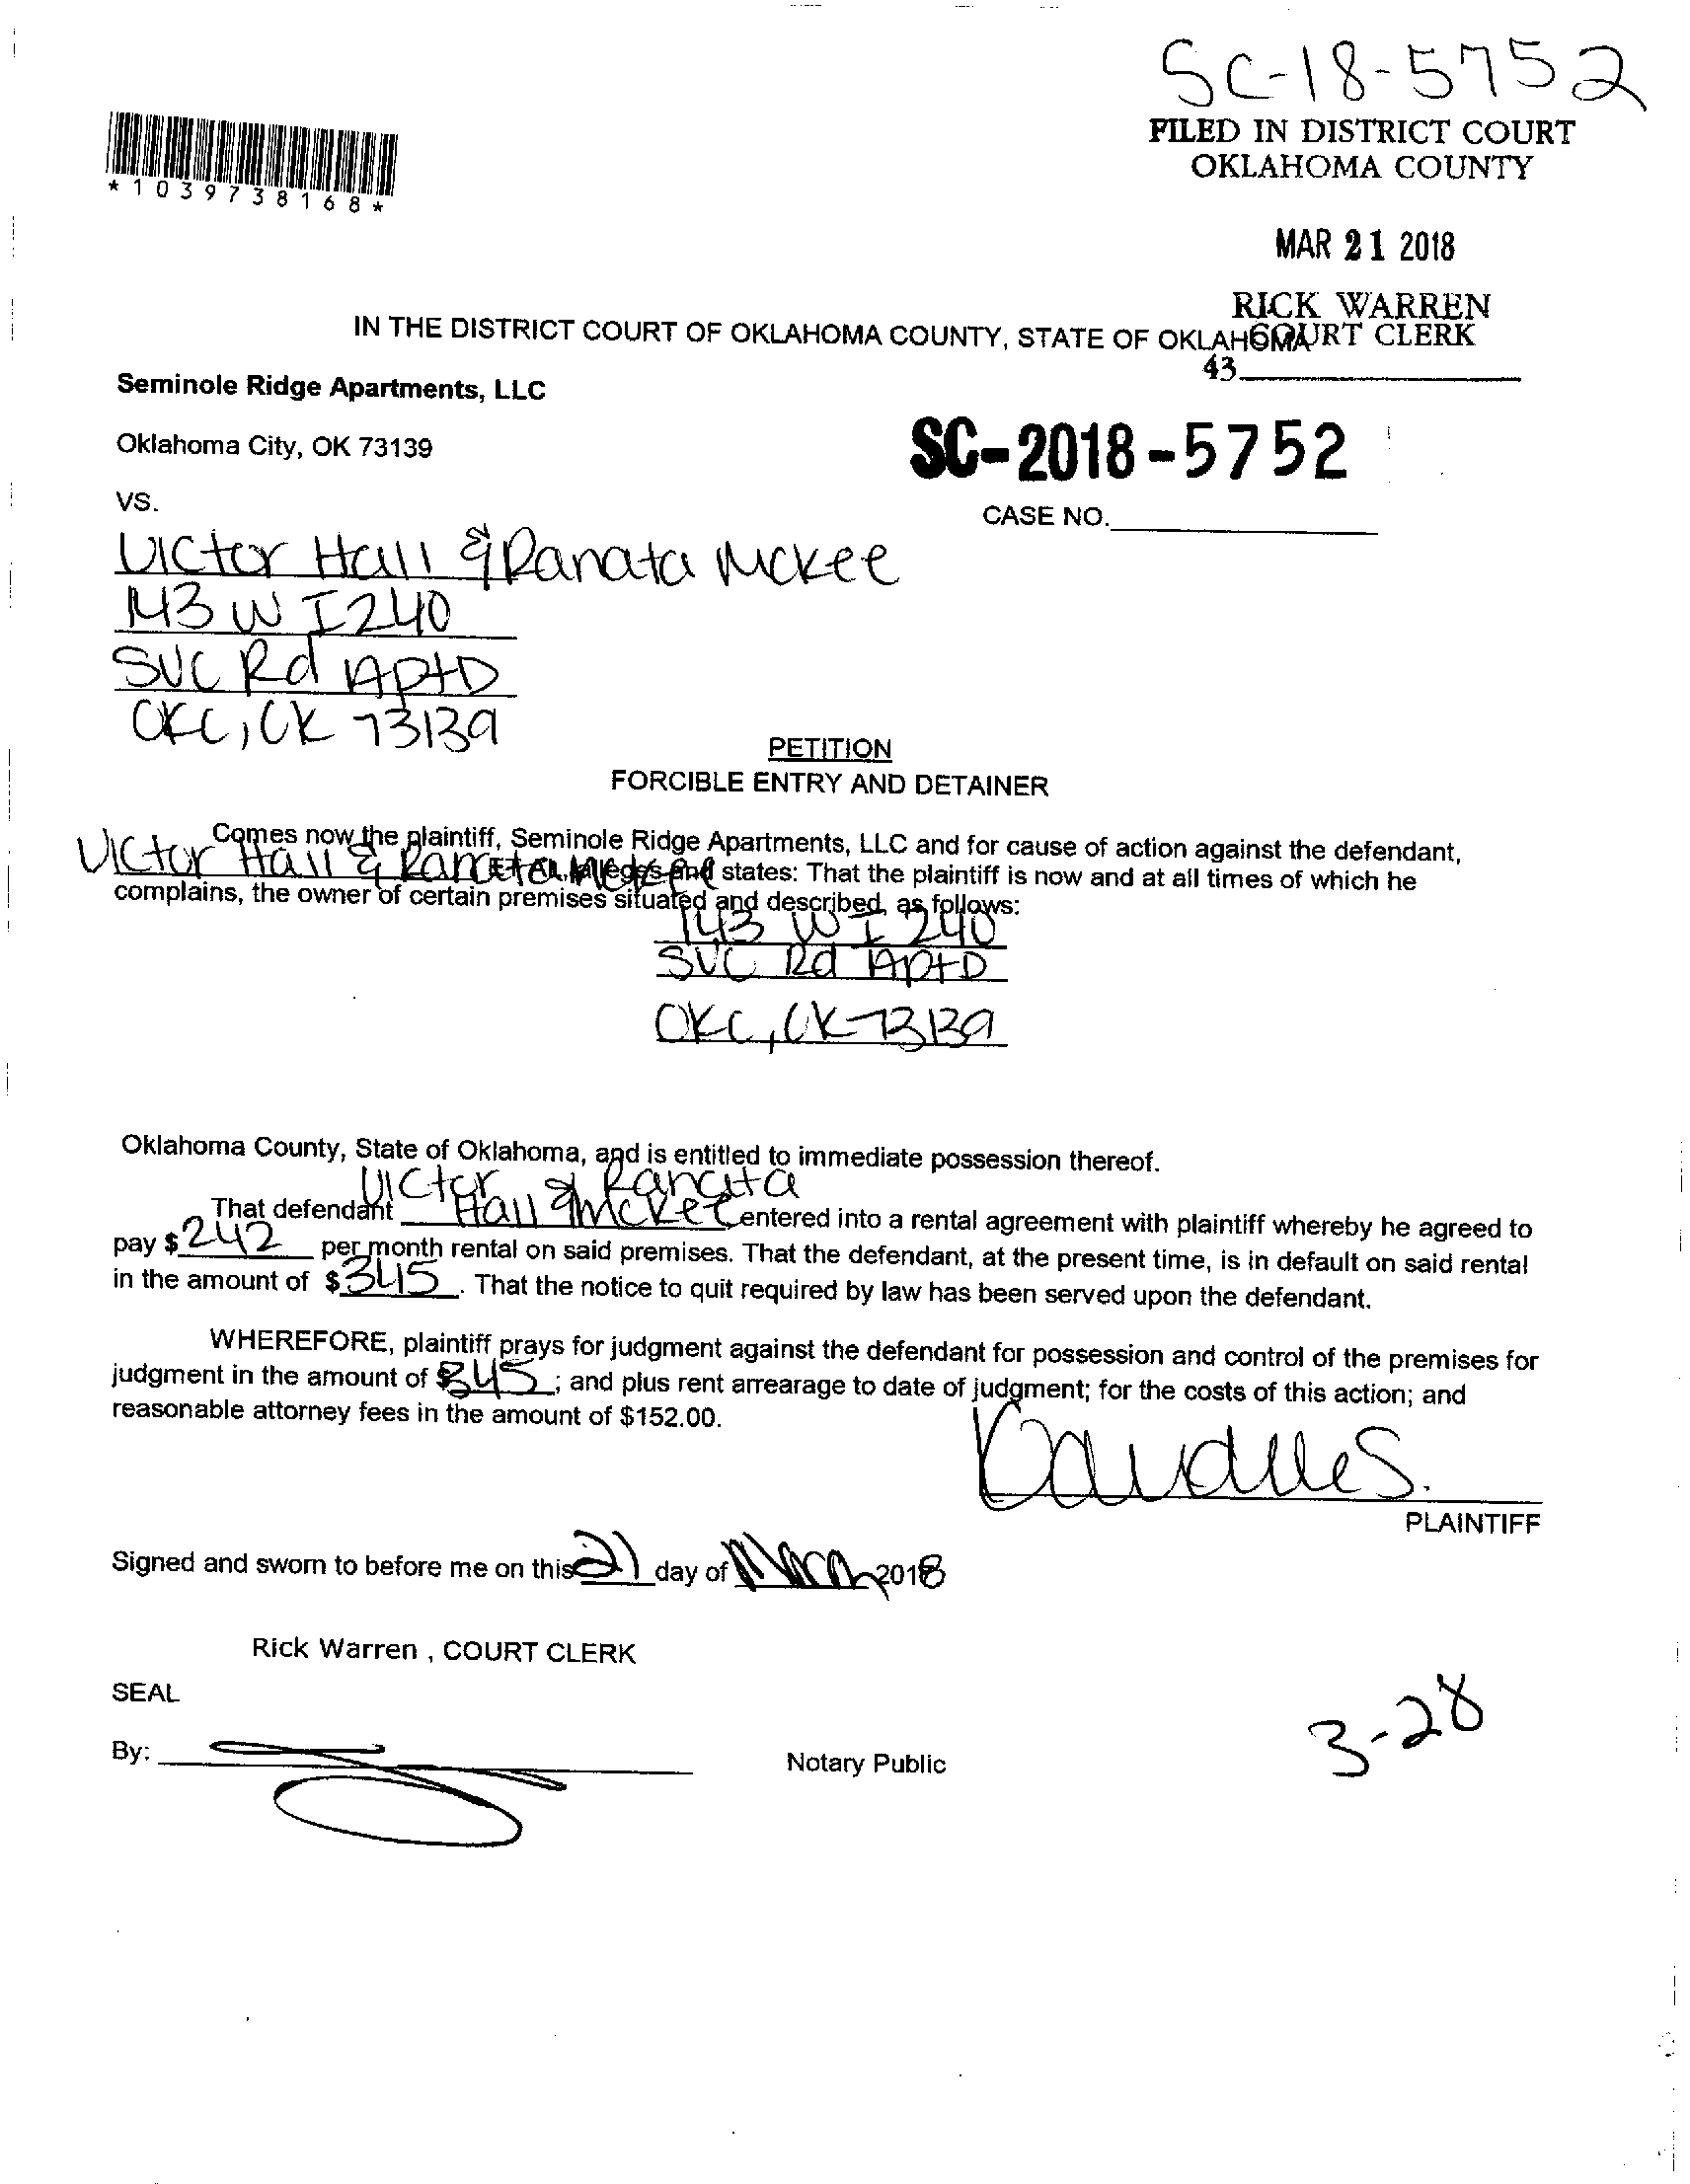 SC-18-5752
FILED IN DISTRICT COURT
OKLAHOMA COUNTY
*1039738168*
MAR 21 2018
RICK WARREN
COURT CLERK
43
IN THE DISTRICT COURT OF OKLAHOMA COUNTY, STATE OF OKLAHOMA
Seminole Ridge Apartments, LLC
Oklahoma City, OK 73139
SC-2018-5752
VS.
CASE NO.
Victor Hall & Ranata McKee
143 W I240
SVC Rd Apt D
OKC, OK 73139
PETITION
FORCIBLE ENTRY AND DETAINER
Comes now the plaintiff, Seminole Ridge Apartments, LLC and for cause of action against the defendant,
Victor Hall & Ranata McKee ET AL, alleges and states: That the plaintiff is now and at all times of which he
complains, the owner of certain premises situated and described, as follows:
143 W I 240
SVC Rd Apt D
OKC, OK 73139
Oklahoma County, State of Oklahoma, and is entitled to immediate possession thereof.
That defendant Victor Hall & Ranata McKee entered into a rental agreement with plaintiff whereby he agreed to
pay $242 per month rental on said premises. That the defendant, at the present time, is in default on said rental
in the amount of $345. That the notice to quit required by law has been served upon the defendant.
WHEREFORE, plaintiff prays for judgment against the defendant for possession and control of the premises for
judgment in the amount of $345; and plus rent arrearage to date of judgment; for the costs of this action; and
reasonable attorney fees in the amount of $152.00.
PLAINTIFF
Signed and sworn to before me on this 21 day of March 2018
Rick Warren , COURT CLERK
SEAL
3-28
By:
Notary Public